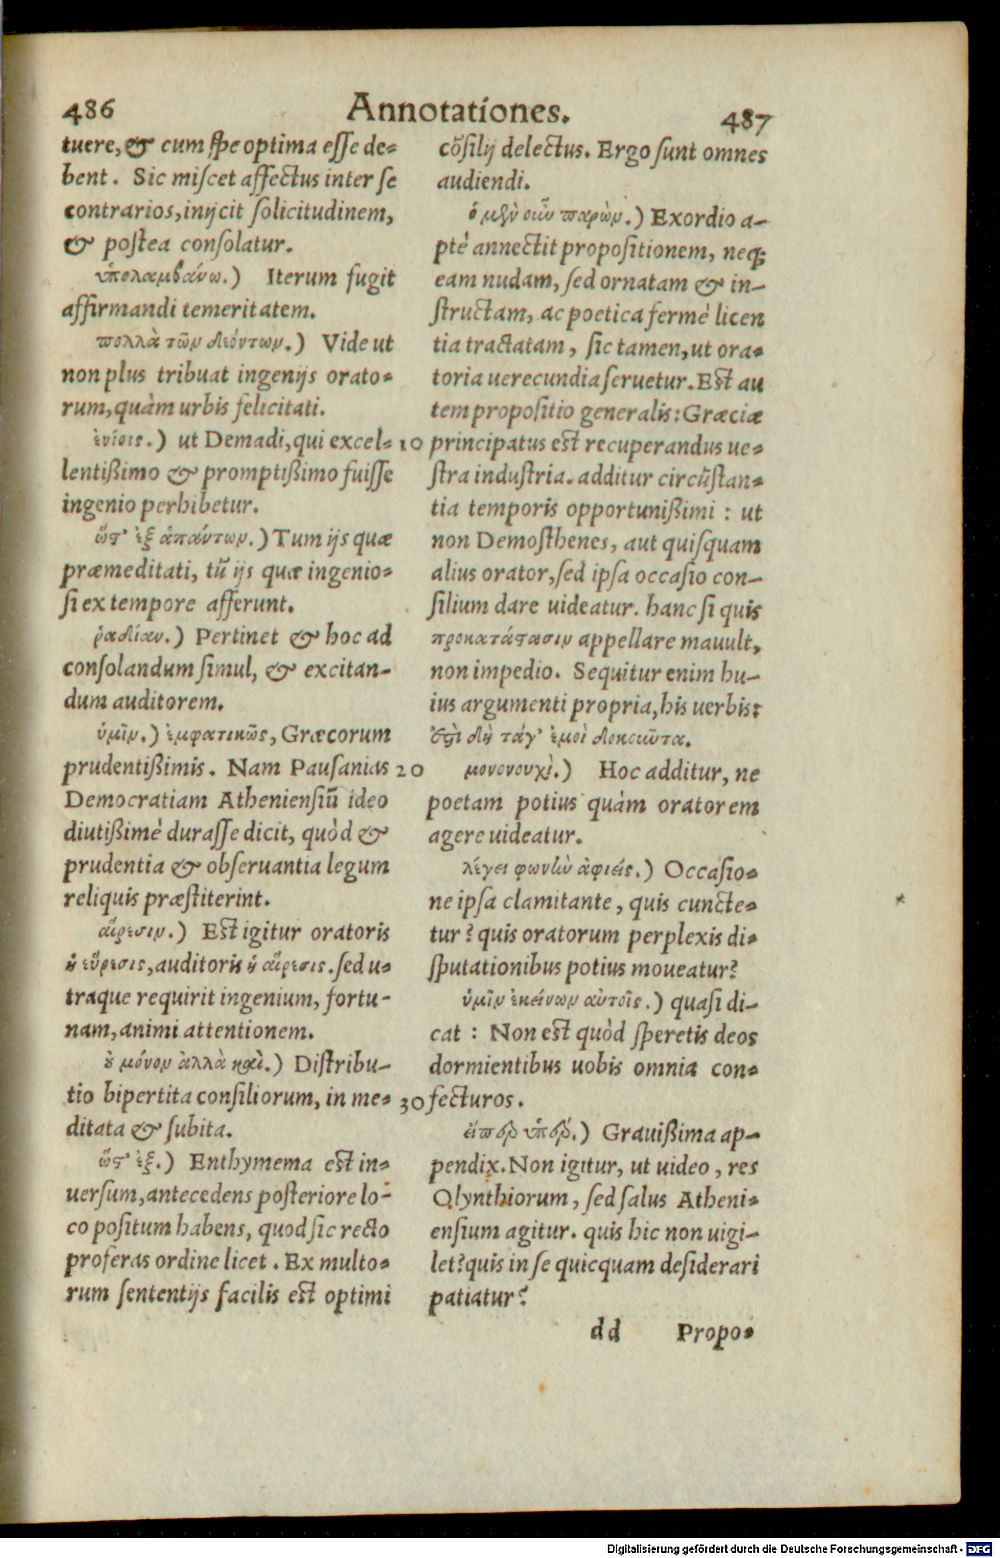 486 Annotationes. 487
tuere, & cum spe optima esse de=
bent. Sic miscet affectus inter se
contrarios, inijcit solicitudinem,
& postea consolatur.
ὑπολαμβάνω.) Iterum fugit
affirmandi temeritatem.
πολλὰ τῶν δεόντων.) Vide ut
non plus tribuat ingenijs orato=
rum, quàm urbis felicitati.
ἐνίοις.) ut Demadi, qui excel=
lentißimo & promptißimo fuisse
ingenio perhibetur.
ὥστ' ἐξ ἁπάντων.) Tum ijs quæ
præmeditati, tũ ijs quæ ingenio=
si ex tempore afferunt.
ῥᾳδίαν.) Pertinet & hoc ad
consolandum simul, & excitan-
dum auditorem.
ὑμῖν.) ἐμφατικῶς, Græcorum
prudentißimis. Nam Pausanias
Democratiam Atheniensiũ ideo
diutißimè durasse dicit, quòd &
prudentia & obseruantia legum
reliquis præstiterint.
αἵρεσιν.) Est igitur oratoris
ἡ εὕρεσις, auditoris ἡ αἵρεσις. sed u=
traque requirit ingenium, fortu-
nam, animi attentionem.
οὐ μόνον ἀλλὰ καὶ.) Distribu-
tio bipertita consiliorum, in me=
ditata & subita.
ὥστ' ἐξ.) Enthymema est in=
uersum, antecedens posteriore lo-
co positum habens, quod sic recto
proferas ordine licet. Ex multo=
rum sententijs facilis est optimi
cõsilij delectus. Ergo sunt omnes
audiendi.
ὁ μὲν οὖν παρὼν.) Exordio a-
ptè annectit propositionem, neq;
eam nudam, sed ornatam & in-
structam, ac poetica fermè licen
tia tractatam, sic tamen, ut ora=
toria uerecundia seruetur. Est au
tem propositio generalis: Græciæ
10 principatus est recuperandus ue=
stra industria. additur circũstan=
tia temporis opportunißimi: ut
non Demosthenes, aut quisquam
alius orator, sed ipsa occasio con-
silium dare uideatur. hanc si quis
προκατάστασιν appellare mauult,
non impedio. Sequitur enim hu-
ius argumenti propria, his uerbis:
ἔστι δὴ τάγ' ἐμοὶ δοκοῦντα.
20 μονονουχὶ.) Hoc additur, ne
poetam potius quàm oratorem
agere uideatur.
λέγει φωνὴν ἀφιείς.) Occasio=
ne ipsa clamitante, quis cuncte=
tur? quis oratorum perplexis di=
sputationibus potius moueatur?
ὑμῖν ἐκείνων αὐτοῖς.) quasi di-
cat: Non est quòd speretis deos
dormientibus uobis omnia con=
30 fecturos.
εἴπερ ὑπὲρ.) Grauißima ap-
pendix. Non igitur, ut uideo, res
Olynthiorum, sed salus Atheni=
ensium agitur. quis hic non uigi-
let? quis in se quicquam desiderari
patiatur?
dd Propo=
Digitalisierung gefördert durch die Deutsche Forschungsgemeinschaft - DFG